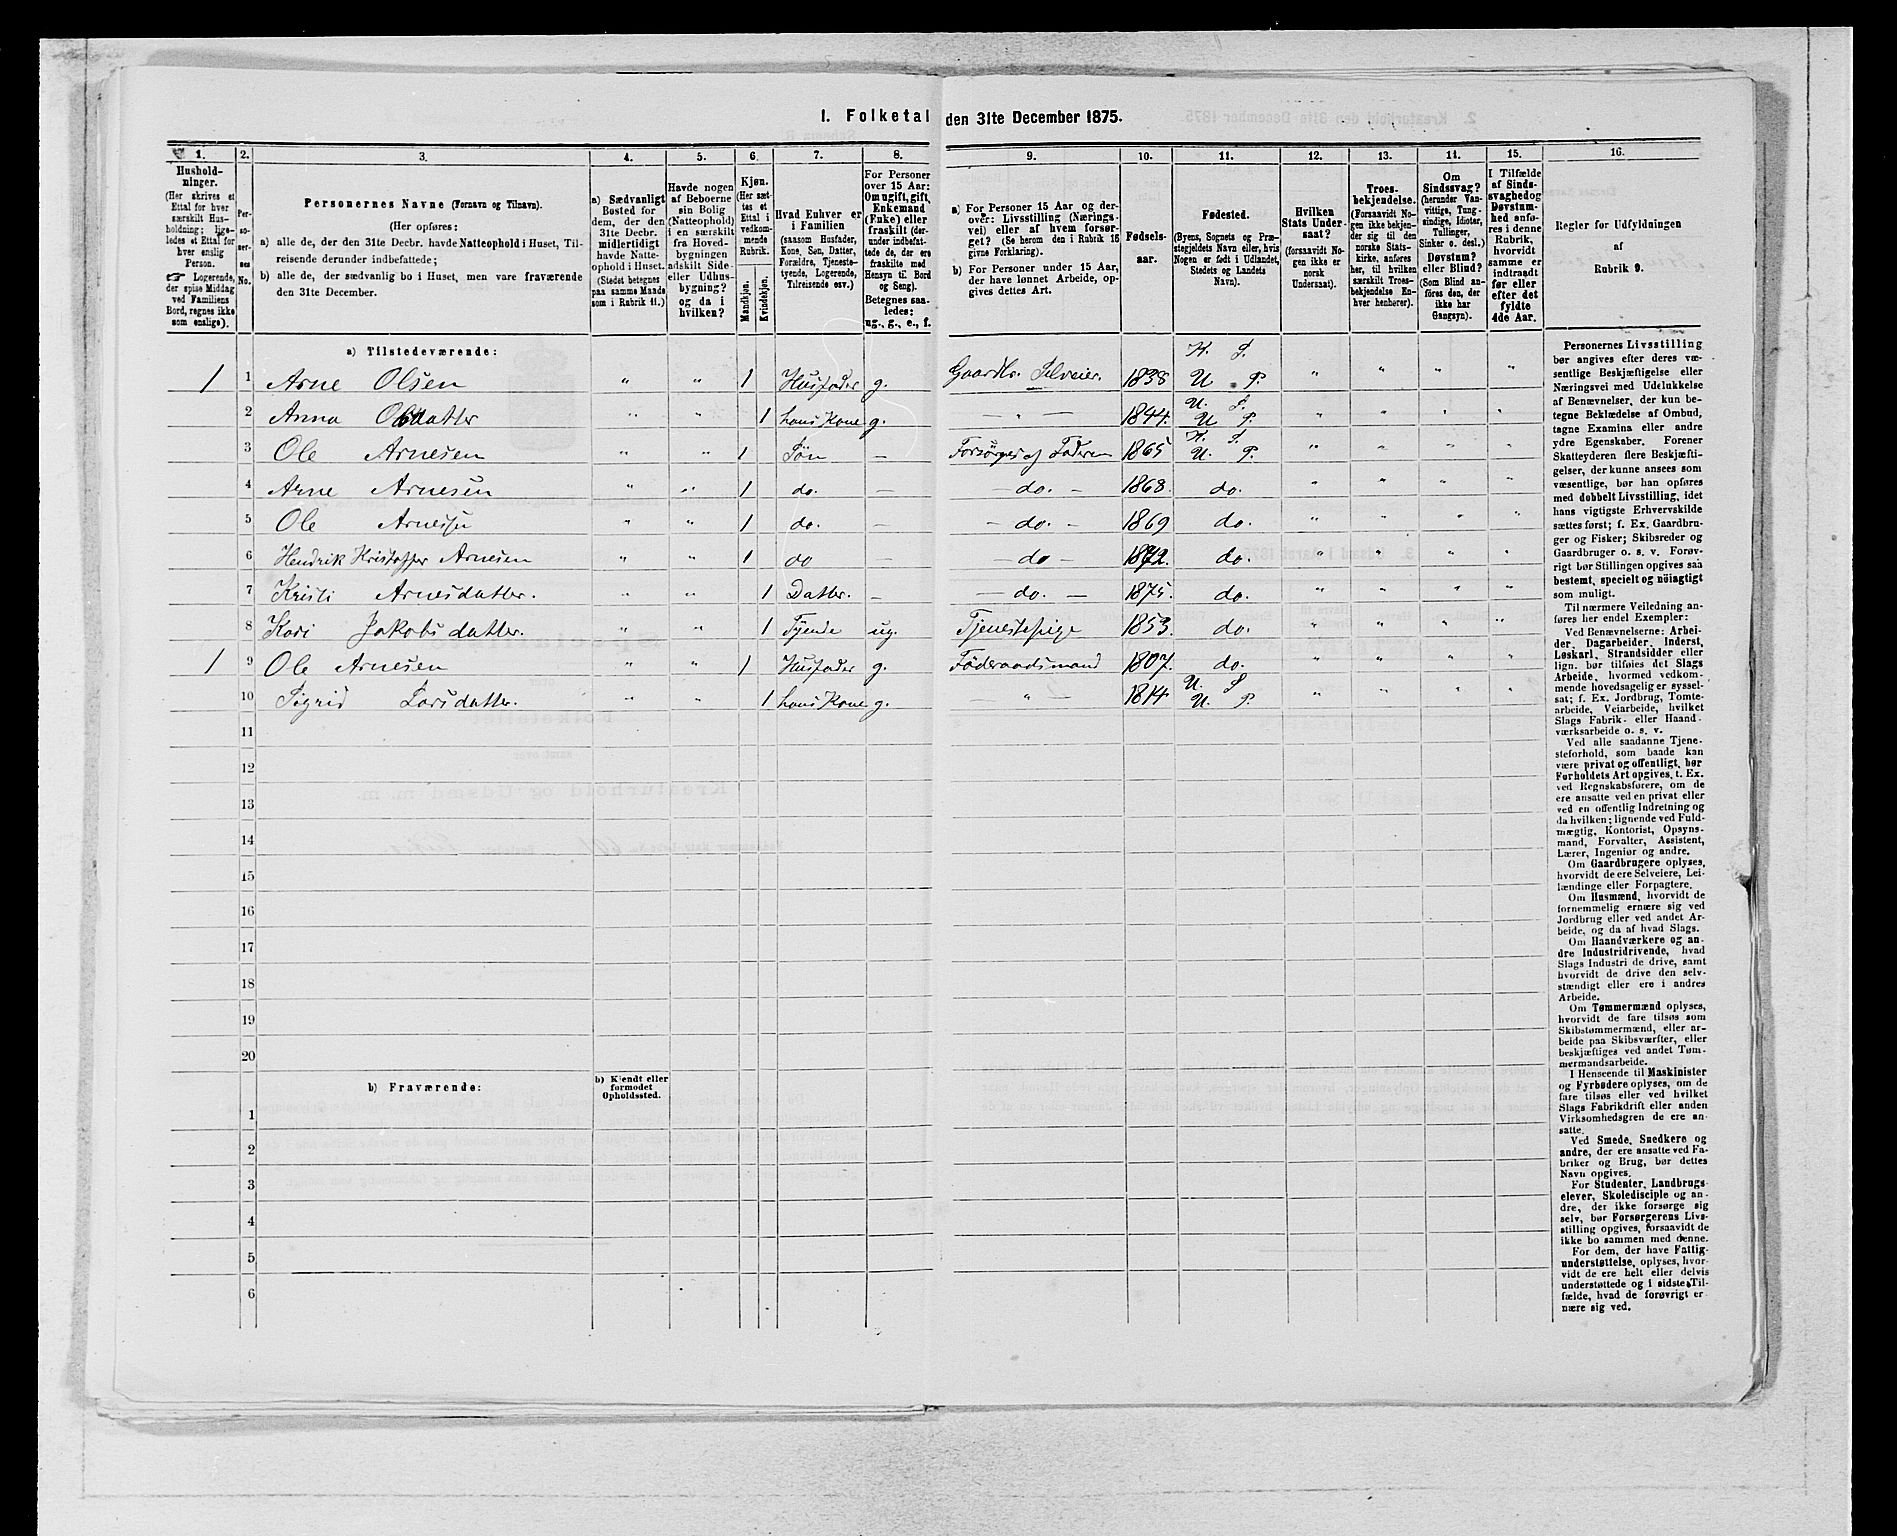 1. Folketal den 31te December 1875.
1. 2. 3. 4. 5. 6. 7. 8. 9. 10. 11. 12. 13. 14. 15. 16.
Hushold-
ninger.
(Her skrives et
Ettal for hver
særskilt Hus-
holdning; lige-
ledes et Ettal for
hver enslig
Person.
☞ Logerende,
der spise Middag
ved Familiens
Bord, regnes ikke
som enslige).
Per-
so-
ner-
nes
No.
Personernes Navne (Fornavn og Tilnavn).
(Her opføres:
a) alle de, der den 31te Decbr. havde Natteophold i Huset, Til-
reisende derunder indbefattede;
b) alle de, der sædvanlig bo i Huset, men vare fraværende
den 31te December.
a) Sædvanligt
Bosted for
dem, der den
31te Decbr.
midlertidigt
havde Natte-
ophold i Huset.
(Stedet betegnes
paa samme Maade
som i Rubrik 11.)
Havde nogen
af Beboerne
sin Bolig
(Natteophold)
i en særskilt
fra Hoved-
bygningen
adskilt Side-
eller Udhus-
bygning?
og da i
hvilken?
Kjøn.
(Her sæt-
tes et
Ettal i
vedkom-
mende
Rubrik.
Mandkjøn.
Kvindekjøn.
Hvad Enhver er
i Familien
(saasom Husfader,
Kone, Søn, Datter,
Forældre, Tjeneste-
tyende, Logerende,
Tilreisende osv.)
For Personer
over 15 Aar:
Om ugift, gift,
Enkemand
(Enke) eller
fraskilt (der-
under indbefat-
tede de, der ere
fraskilte med
Hensyn til Bord
og Seng).
Betegnes saa-
ledes:
ug., g., e., f.
a) For Personer 15 Aar og der-
over: Livsstilling (Nærings-
vei) eller af hvem forsør-
get? (Se herom den i Rubrik 16
givne Forklaring).
b) For Personer under 15 Aar,
der have lønnet Arbeide, op-
gives dettes Art.
Fødsels-
aar.
Fødested.
(Byens, Sognets og Præ-
stegjeldets Navn eller, hvis
Nogen er født i Udlandet,
Stedets og Landets
Navn).
Hvilken
Stats Under-
saat?
(forsaavidt No-
gen ikke er
norsk
Undersaat).
Troes-
bekjendelse.
(Forsaavidt No-
gen ikke bekjen-
der sig til den
norske Stats-
kirke, anføres
her, til hvilken
særskilt Troes-
bekjendelse En-
hver henhører).
Om
Sindssvag?
(herunder Van-
vittige, Tung-
sindige, Idioter,
Tullinger,
Sinker o. desl.)
Døvstum?
eller Blind?
(Som Blind an-
føres den, der
ikke har
Gangsyn).
I Tilfælde
af Sinds-
svaghed og
Døvstum-
hed anfø-
res i denne
Rubrik,
hvorvidt
samme er
indtraadt
før eller
efter det
fyldte
4de Aar.
Regler for Udfyldningen
af
Rubrik 9.
a) Tilstedeværende:
K. S.
1 1 Arne Olsen " " 1 Husfader g. Gaardbr. Selveier. 1838 U. P. " " " "
U. S.
2 Anna Olsdatter " " 1 hans Kone g. — " — 1844. U. P. " " " "
K. S.
3 Ole Arnesen " " 1 Søn — Forsørges af Faderen 1865 U. P. " " " "
4 Arne Arnesen " " 1 do. — — do. — 1868. do. " " " "
5 Ole Arnesen " " 1 do. — — do. — 1869 do. " " " "
6 Hendrik Kristoffer Arnesen " " 1 do — do — 1872. do. " " " "
7 Kristi Arnesdatter. " " 1 Datter. — — do. — 1875. do. " " " "
8 Kari Jakobsdatter. " " 1 Tyende ug. Tjenestepige 1853. do. " " " "
1 9 Ole Arnesen " " 1 Husfader g. Føderaadsmand 1807. do. " " " "
U. S.
10 Sigrid Larsdatter. " " 1 hans Kone g. — " — 1814. U. P. " " " "
11
12
13
14
15
16
17
18
19
20
b) Fraværende:
b) Kjendt eller
formodet
Opholdssted.
1
2
3
4
5
6
Personernes Livsstilling
bør angives efter deres væ-
sentlige Beskjæftigelse eller
Næringsvei med Udelukkelse
af Benævnelser, der kun be-
tegne Beklædelse af Ombud,
tagne Examina eller andre
ydre Egenskaber. Forener
Skatteyderen flere Beskjæfti-
gelser, der kunne ansees som
væsentlige, bør han opføres
med dobbelt Livsstilling, idet
hans vigtigste Erhvervskilde
sættes først; f. Ex. Gaardbru-
ger og Fisker; Skibsreder og
Gaardbruger o. s. v. Forøv-
rigt bør Stillingen opgives saa
bestemt, specielt og nöiagtigt
som muligt.
Til nærmere Veiledning an-
føres her endel Exempler:
Ved Benævnelserne: Arbei-
der, Dagarbeider, Inderst,
Løskarl, Strandsidder eller
lign. bør tilføies det Slags
Arbeide, hvormed vedkom-
mende hovedsagelig er syssel-
sat; f. Ex. Jordbrug, Tomte-
arbeide, Veiarbeide, hvilket
Slags Fabrik- eller Haand-
værksarbeide o. s. v.
Ved alle saadanne Tjene-
steforhold, som baade kan
være privat og offentligt, bør
Forholdets Art opgives, t. Ex.
ved Regnskabsførere, om de
ere ansatte ved en privat eller
ved en offentlig Indretning og
da hvilken; lignende ved Fuld-
mægtig, Kontorist, Opsyns-
mand, Forvalter, Assistent,
Lærer, Ingeniør og andre.
Om Gaardbrugere oplyses,
hvorvidt de ere Selveiere, Lei-
lændinge eller Forpagtere.
Om Husmænd, hvorvidt de
fornemmelig ernære sig ved
Jordbrug eller ved andet Ar-
beide, og da af hvad Slags.
Om Haandværkere og an-
dre Industridrivende, hvad
Slags Industri de drive, samt
hvorvidt de drive den selv-
stændigt eller ere i andres
Arbeide.
Om Tømmermænd oplyses,
hvorvidt de fare tilsøs som
Skibstømmermænd, eller ar-
beide paa Skibsværfter, eller
beskjæftiges ved andet Tøm-
mermandsarbeide.
I Henseende til Maskinister
og Fyrbødere oplyses, om de
fare tilsøs eller ved hvilket
Slags Fabrikdrift eller anden
Virksomhedsgren de ere an-
satte.
Ved Smede, Snedkere og
andre, der ere ansatte ved Fa-
briker og Brug, bør dettes
Navn opgives.
For Studenter, Landbrugs-
elever, Skoledisciple og an-
dre, der ikke forsørge sig
selv, bør Forsørgerens Livs-
stilling opgives, forsaavidt de
ikke bo sammen med denne.
For dem, der have Fattig-
understøttelse, oplyses, hvor-
vidt de ere helt eller delvis
understøttede og i sidste Til-
fælde, hvad de forøvrigt er-
nære sig ved.